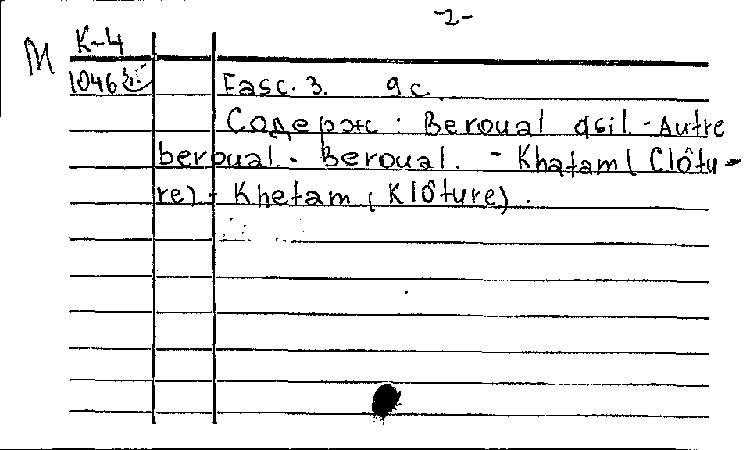 -2-
M K-4
1046
Fasc. 3. 9 с.
Содерж : Beroual asil. - Autre
beroual. - Beroual. - Khatam ( Clôtu-
re) - Khetam ( Klôture) .